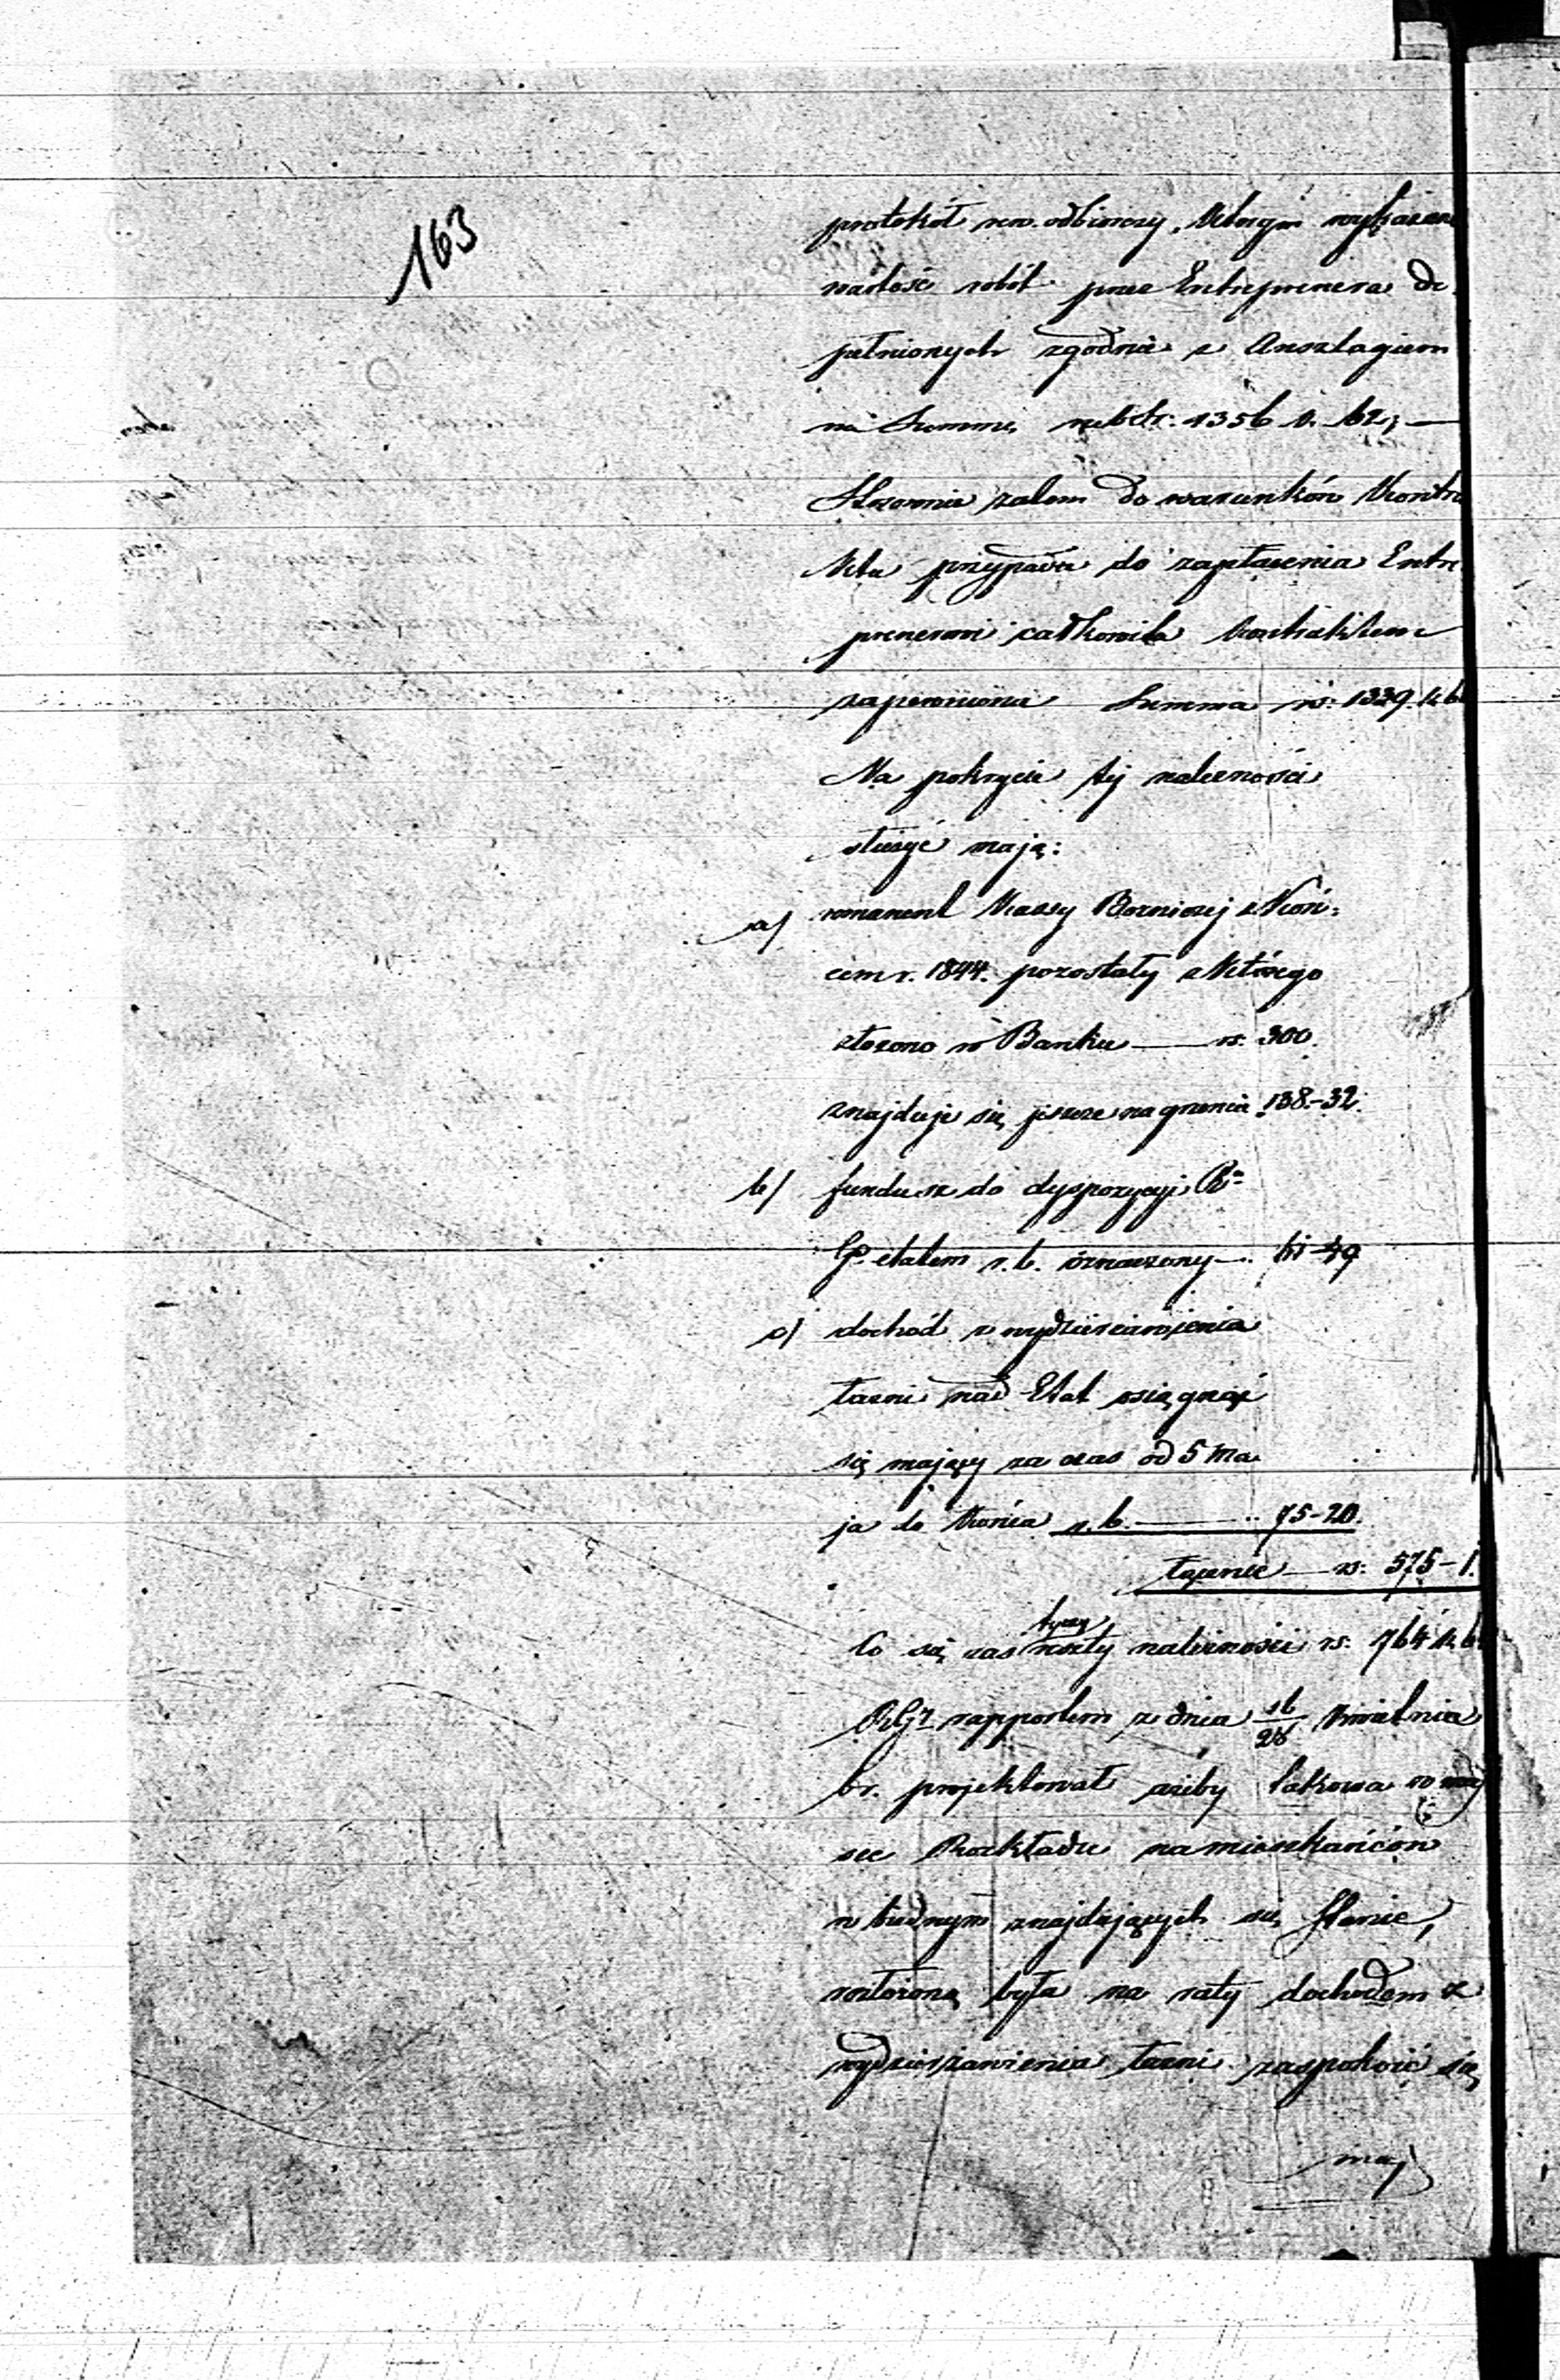 163
protokół rew. odbiorczy, którym wykazan
wartość robót przez Entreprenera do
pełnionych zgodnie z Anszlagiem
na Summę rubsr: 1356 k. 62,—
Stosownie zatem do warunków Kontra
ktu przypada do zapłacenia Entre
prenerowi całkowita kontraktem
zapewniona Summa rs: 1339 k 6
Na pokrycie tej należności
służyć mają:
a/ remanent Kassy Bożniczej z Koń:
cem r. 1844. pozostały z którego
złożono w Banku — rs: 300.
znajduje się jeszcze na gruncie 138.-32.
b/ fundusz do dyspozycyi R:
G. etatem r. b. oznaczony — 61-49
c/ dochód z wydzierżawienia
łaźni nad Etat osiągnąć
się mający za czas od 5 Ma
ja do końca r. b. — 75-20.
łącznie — rs: 575-1.
Co się zaś tyczy reszty należności rs. 764 k 6
RGr rapportem z dnia 16/28 Kwietnia
br. projektował ażeby takowa w miej
sce Rozkładu na mieszkańców
w biednym znajdujących się Stanie,
rozłożoną była na raty dochodem z
wydzierżawienia łaźni zaspokoić się
maj